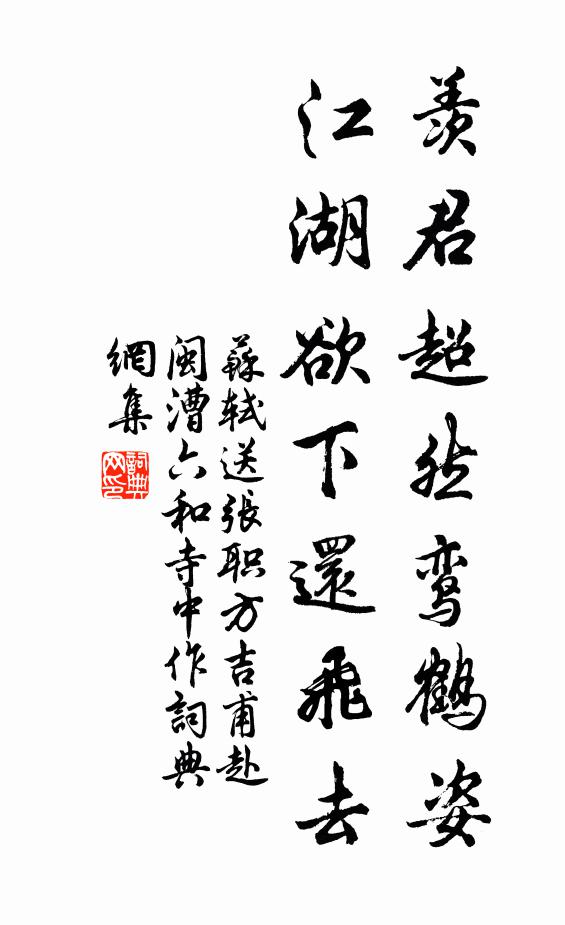 羨君超然鸾鶴姿
江湖欲下還飛去
蘇軾送張职方吉甫赴
閩漕六和寺中作詞典
網集
詞典網印